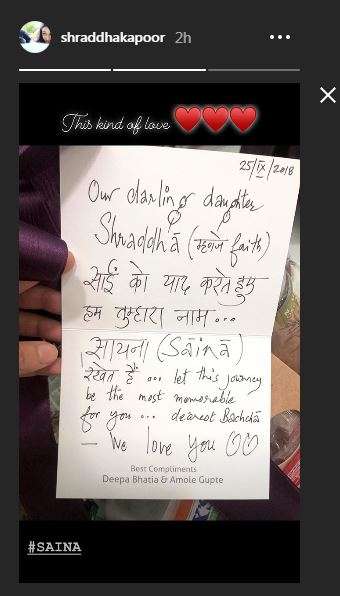 shraddhakapoor 2h
This kind of love ❤️❤️❤️
25/IX/2018
Our darling daughter
Shraddhā (म्हणजे faith)
साईं को याद करते हुए
हम तुम्हारा नाम...
सायना (Sainā)
रखते हैं ... let this journey
be the most memorable
for you ... dearest Bachchā
— We love you ♡♡
Best Compliments
Deepa Bhatia & Amole Gupte
#SAINA